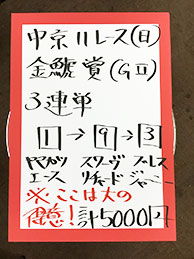 中京11レース(日)
金鯱賞(GⅡ)
3連単
1→9→3
ヤマカツ スワーヴ プレス
エース リチャード ジャーニー
※ここは大の
得意!計5000円